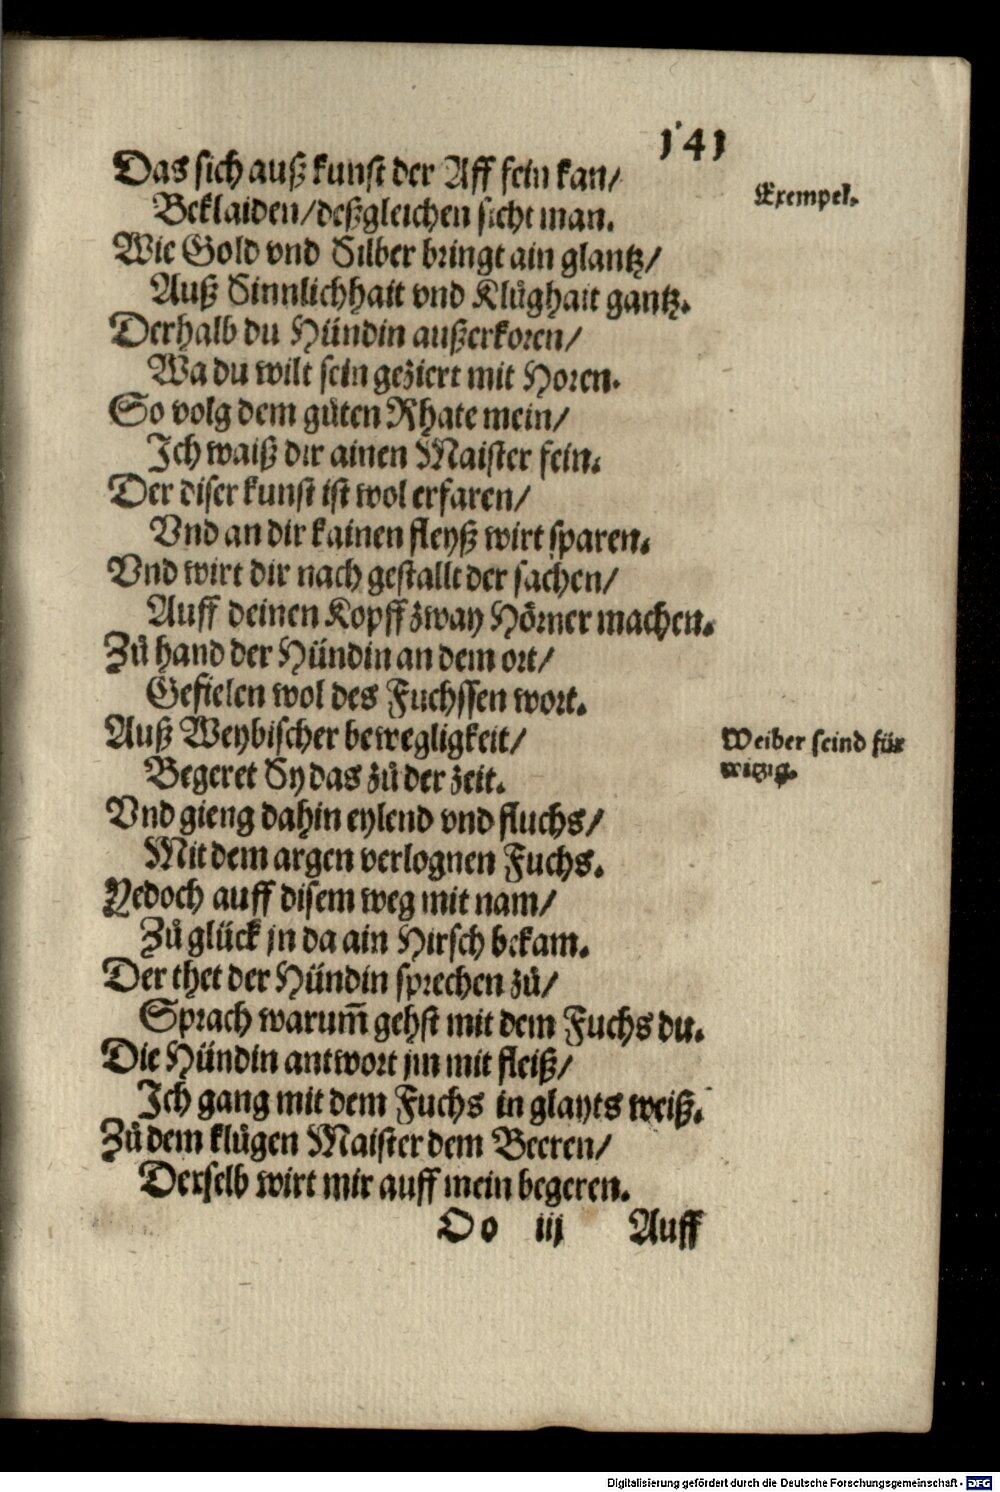 141
Das sich auß kunst der Aff fein kan/
Exempel.
Beklaiden/deßgleichen sicht man.
Wie Gold vnd Silber bringt ain glantz/
Auß Sinnlichhait vnd Klůghait gantz.
Derhalb du Hündin außerkoren/
Wa du wilt sein geziert mit Horen.
So volg dem gůten Rhate mein/
Ich waiß dir ainen Maister fein.
Der diser kunst ist wol erfaren/
Vnd an dir kainen fleyß wirt sparen.
Vnd wirt dir nach gestallt der sachen/
Auff deinen Kopff zway Hörner machen.
Zů hand der Hündin an dem ort/
Gefielen wol des Fuchssen wort.
Auß Weybischer bewegligkeit/
Weiber seind für
witzig.
Begeret Sy das zů der zeit.
Vnd gieng dahin eylend vnd fluchs/
Mit dem argen verlognen Fuchs.
Yedoch auff disem weg mit nam/
Zů glück jn da ain Hirsch bekam.
Der thet der Hündin sprechen zů/
Sprach warum̃ gehst mit dem Fuchs du.
Die Hündin antwort jm mit fleiß/
Ich gang mit dem Fuchs in glayts weiß.
Zů dem klůgen Maister dem Beeren/
Derselb wirt mir auff mein begeren.
Oo iij Auff
Digitalisierung gefördert durch die Deutsche Forschungsgemeinschaft - DFG